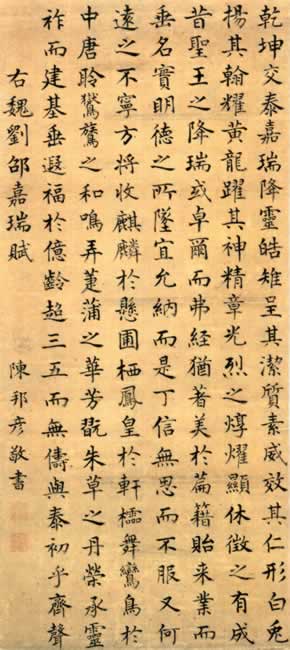 乾坤交泰嘉瑞降靈皓雉呈其潔質素威效其仁形白兎
揚其翰耀黃龍躍其神精章光烈之焞燿顯休徵之有成
昔聖王之降瑞或卓爾而弗經猶著美於篇籍貽来業而
垂名實明德之所墜宜允納而是丁信無思而不服又何
遠之不寧方將收麒麟於懸圃栖鳳皇於軒櫺舞鸞鳥於
中唐聆鸑鷟之和鳴弄萐蒲之華芳翫朱草之丹榮承靈
祚而建基垂遐福於億齡超三五而無儔與泰初乎齊聲
右魏劉邵嘉瑞賦 陳邦彦敬書